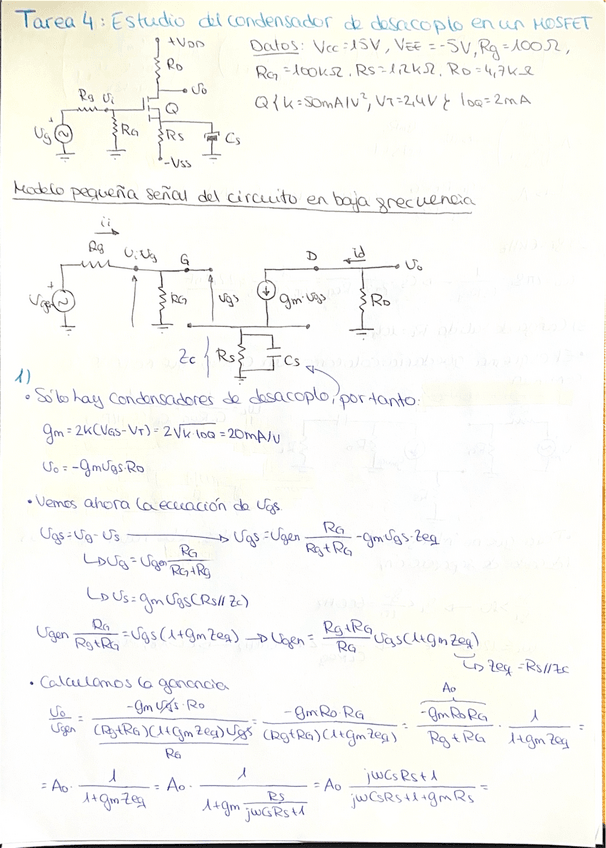 Tarea 4: Estudio del condensador de desacoplo en un MOSFET
+VDD
RD
Vo
Rg
Ui
Q
Ug
RG
RS
Cs
-VSS
Datos: Vcc=15V, VEE=-5V, Rg=100Ω,
RG=100KΩ, RS=1,2KΩ, RD=4,7KΩ
Q{K=50mA/V², VT=2,4V} IDQ=2mA
Modelo pequeña señal del circuito en baja frecuencia
ii
Rg
Ui
Ug
G
D
id
Uo
Ugen
RG
Ugs
gm·Ugs
RD
Zc
RS
Cs
1)
• Sólo hay condensadores de desacoplo, por tanto:
gm=2K(VGS-VT)=2√K·IDQ=20mA/V
Uo=-gmUgs·RD
• Vemos ahora la ecuación de Ugs
Ugs=Ug-Us → Ugs=Ugen RG/(Rg+RG) -gmUgs·Zeq
↳ Ug=Ugen RG/(RG+Rg)
↳ Us=gmUgs(RS//Zc)
Ugen RG/(Rg+RG)=Ugs(1+gmZeq) → Ugen= (Rg+RG)/RG Ugs(1+gmZeq)
↳ Zeq=RS//Zc
• Calculamos la ganancia
Ao
Uo/Ugen = -gmUgs·RD/((Rg+RG)(1+gmZeq)Ugs/RG) = -gmRDRG/((Rg+RG)(1+gmZeq)) = -gmRDRG/(Rg+RG) · 1/(1+gmZeq) =
= Ao· 1/(1+gmZeq) = Ao· 1/(1+gm RS/(jωCsRs+1)) = Ao (jωCsRs+1)/(jωCsRs+1+gmRs) =